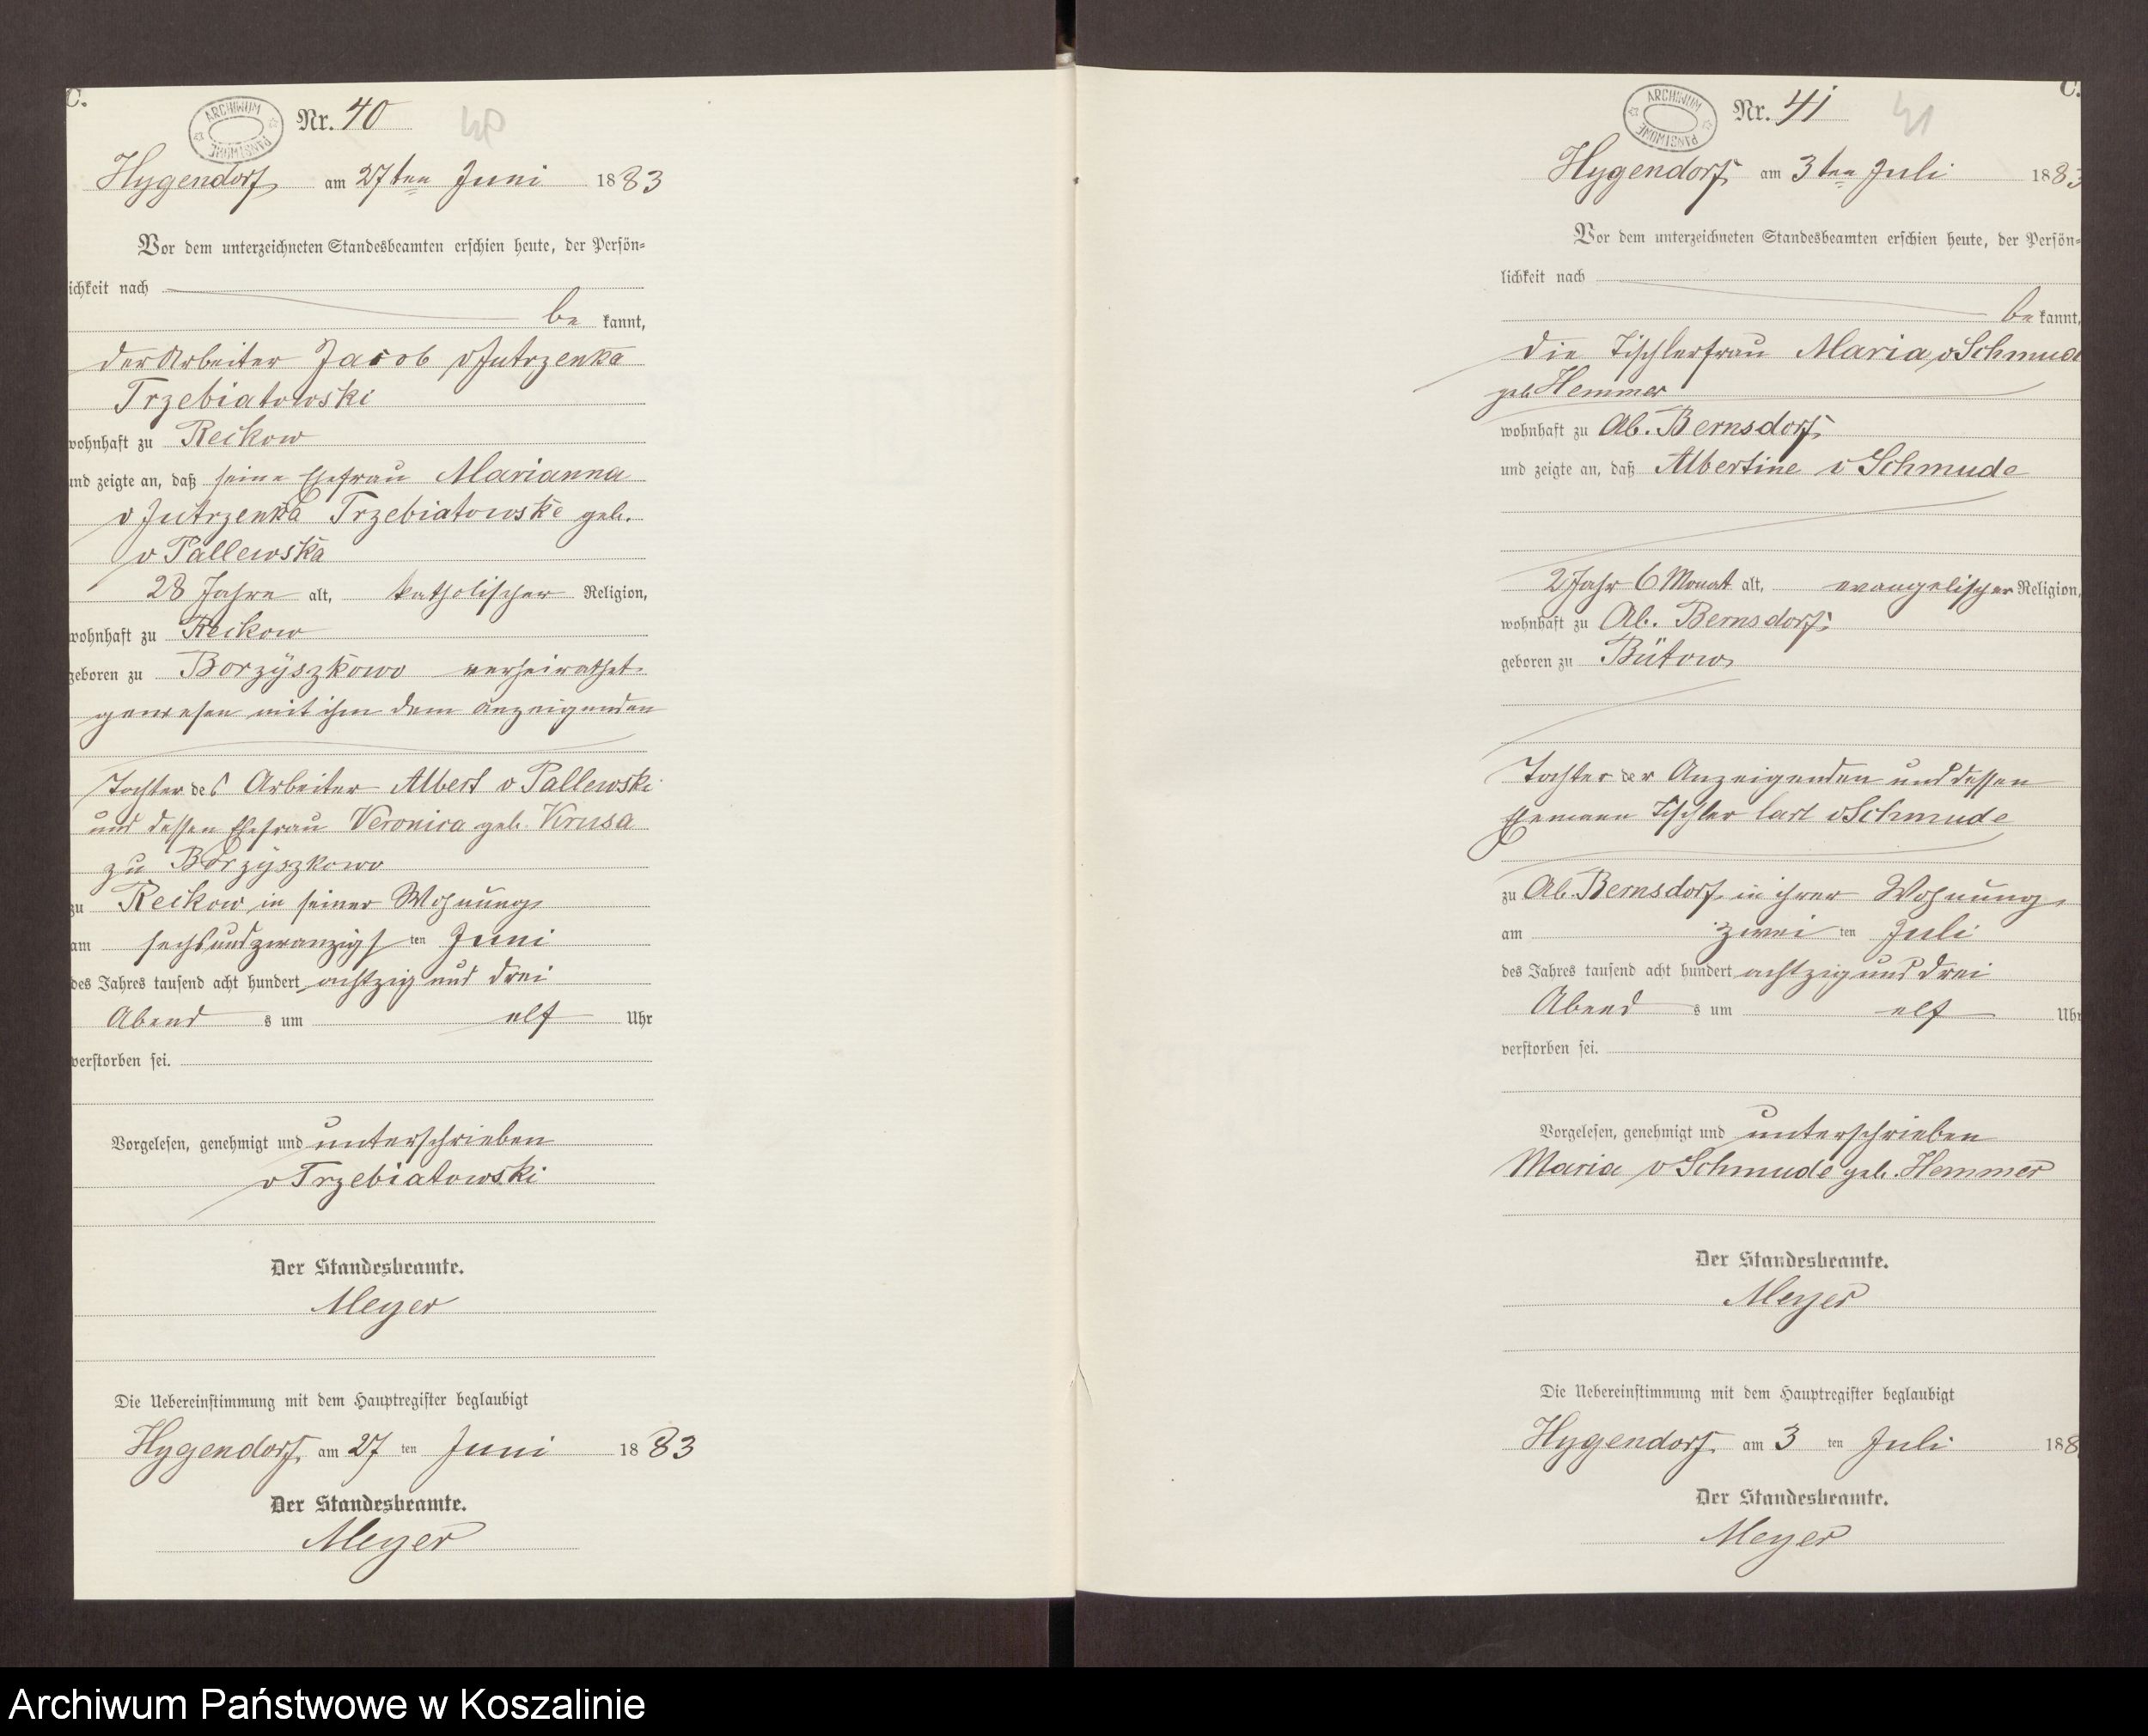 C.
ARCHIWUM PAŃSTWOWE
Nr. 40
40
Hygendorf am 27ten Juni 1883
Vor dem unterzeichneten Standesbeamten erschien heute, der Persön-
ichkeit nach
be kannt,
der Arbeiter Jacob v Jutrzenka
Trzebiatowski
wohnhaft zu Reckow
und zeigte an, daß seine Ehefrau Marianna
v Jutrzenka Trzebiatowske geb.
v Pallewska
28 Jahre alt, katholischer Religion,
wohnhaft zu Reckow
geboren zu Borzyszkowo verheirathet
gewesen mit ihm dem Anzeigenden
Tochter des Arbeiter Albert v Pallewski
und dessen Ehefrau Veronica geb. Krusa
zu Borzyszkowo
zu Reckow in seiner Wohnung
am sechsundzwanzigsten Juni
des Jahres tausend acht hundert achtzig und drei
Abend s um elf Uhr
verstorben sei.
Vorgelesen, genehmigt und unterschrieben
v Trzebiatowski
Der Standesbeamte.
Meyer
Die Uebereinstimmung mit dem Hauptregister beglaubigt
Hygendorf am 27 ten Juni 1883
Der Standesbeamte.
Meyer
C.
ARCHIWUM PAŃSTWOWE
Nr. 41
41
Hygendorf am 3ten Juli 1883
Vor dem unterzeichneten Standesbeamten erschien heute, der Persön-
lichkeit nach
be kannt,
die Tischlerfrau Maria v Schmud
geb Hemmer
wohnhaft zu Ab. Bernsdorf
und zeigte an, daß Albertine v Schmude
2 Jahr 6 Monat alt, evangelischer Religion,
wohnhaft zu Ab. Bernsdorf
geboren zu Bütow
Tochter der Anzeigenden und dessen
Ehemann Tischler Carl v Schmude
zu Ab. Bernsdorf in ihrer Wohnung
am zwei ten Juli
des Jahres tausend acht hundert achtzig und drei
Abend s um elf Uhr
verstorben sei.
Vorgelesen, genehmigt und unterschrieben
Maria v Schmude geb. Hemmer
Der Standesbeamte.
Meyer
Die Uebereinstimmung mit dem Hauptregister beglaubigt
Hygendorf am 3 ten Juli 188
Der Standesbeamte.
Meyer
Archiwum Państwowe w Koszalinie